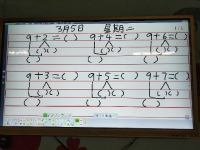 3月5日 星期二
9+2=( ) 9+4=( ) 9+6=( )
( )( ) ( )( ) ( )( )
( ) ( ) ( )
9+3=( ) 9+5=( ) 9+7=( )
( )( ) ( )( ) ( )( )
( ) ( ) ( )